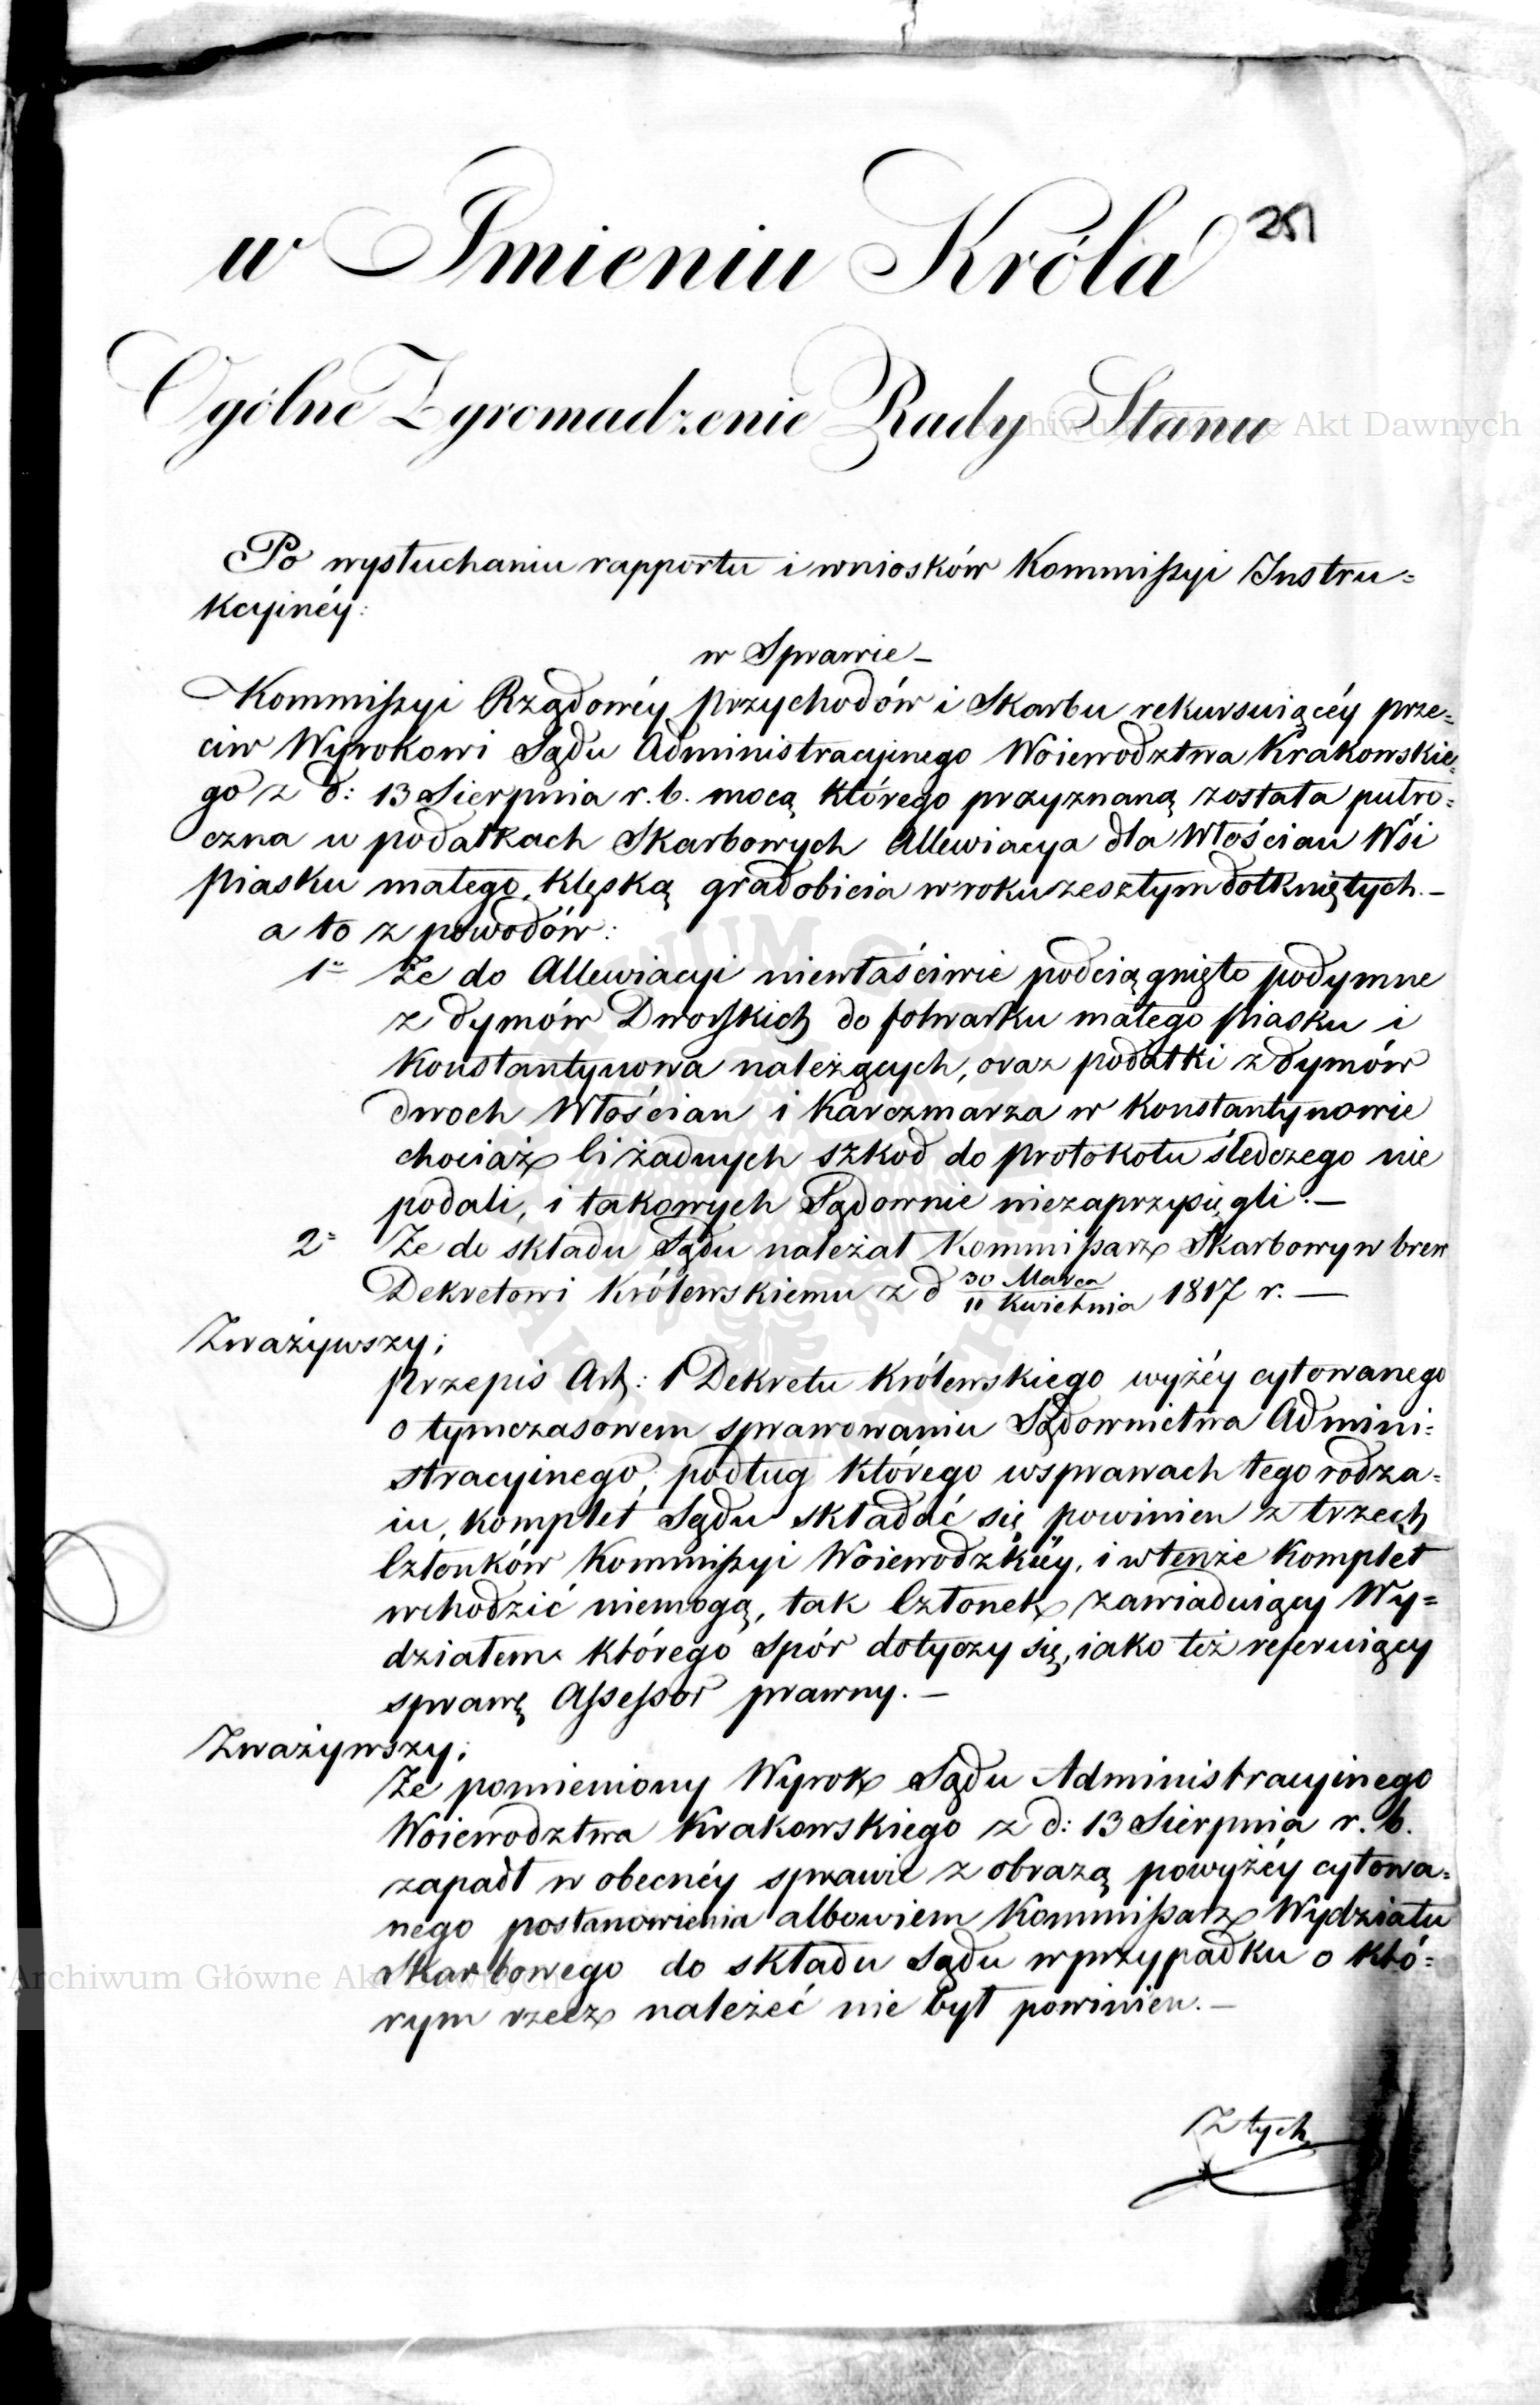 251
w Imieniu Króla
Ogólne Zgromadzenie Rady Stanu
Po wysłuchaniu rapportu i wniosków Kommissyi Instru=
kcyinéy:
w Sprawie –
Kommissyi Rządowéy Przychodów i Skarbu rekursuiącéy prze=
ciw Wyrokowi Sądu Administracyjnego Woiewodztwa Krakowskie=
go z d: 13 Sierpnia r. b. mocą którego przyznaną została pułro=
czna w podatkach Skarbowych Allewiacya dla Włościan Wśi
Piasku małego, klęską gradobicia w roku zeszłym dotkniętych. –
a to z powodów:
1º Że do Allewiacyi niewłaściwie podciągnięto podymne
z dymów Dworskich do folwarku małego Piasku i
Konstantynowa należących, oraz podatki z dymów
dwoch Włościan i Karczmarza w Konstantynowie
chociaż ci żadnych szkod do protokołu śledczego nie
podali, i takowych Sądownie niezaprzysięgli. –
2º Że do składu Sądu należał Kommissarz Skarbowy w brew
Dekretowi Królewskiemu z d 30 Marca / 11 Kwietnia 1817 r. –
Zważywszy;
Przepis Art: 1 Dekretu Królewskiego wyżéy cytowanego
o tymczasowem sprawowaniu Sądownictwa Admini=
stracyinego, podług którego w sprawach tego rodza=
iu, komplet Sądu składać się powinien z trzech
Członków Kommissyi Woiewodzkiéy, i w tenże komplet
wchodzić niemogą, tak Członek zawiaduiący Wy=
działem którego spór dotyczy się, iako też referuiący
sprawę Assessor prawny. –
Zważywszy;
Że pomieniony Wyrok Sądu Administracyinego
Woiewodztwa Krakowskiego z d: 13 Sierpnia r. b.
zapadł w obecnéy sprawie z obrazą powyżéy cytowa=
nego postanowienia albowiem Kommissarz Wydziału
Skarbowego do składu Sądu w przypadku o któ=
rym rzecz należeć nie był powinien. –
Z tych
Archiwum Główne Akt Dawnych
Archiwum Główne Akt Dawnych